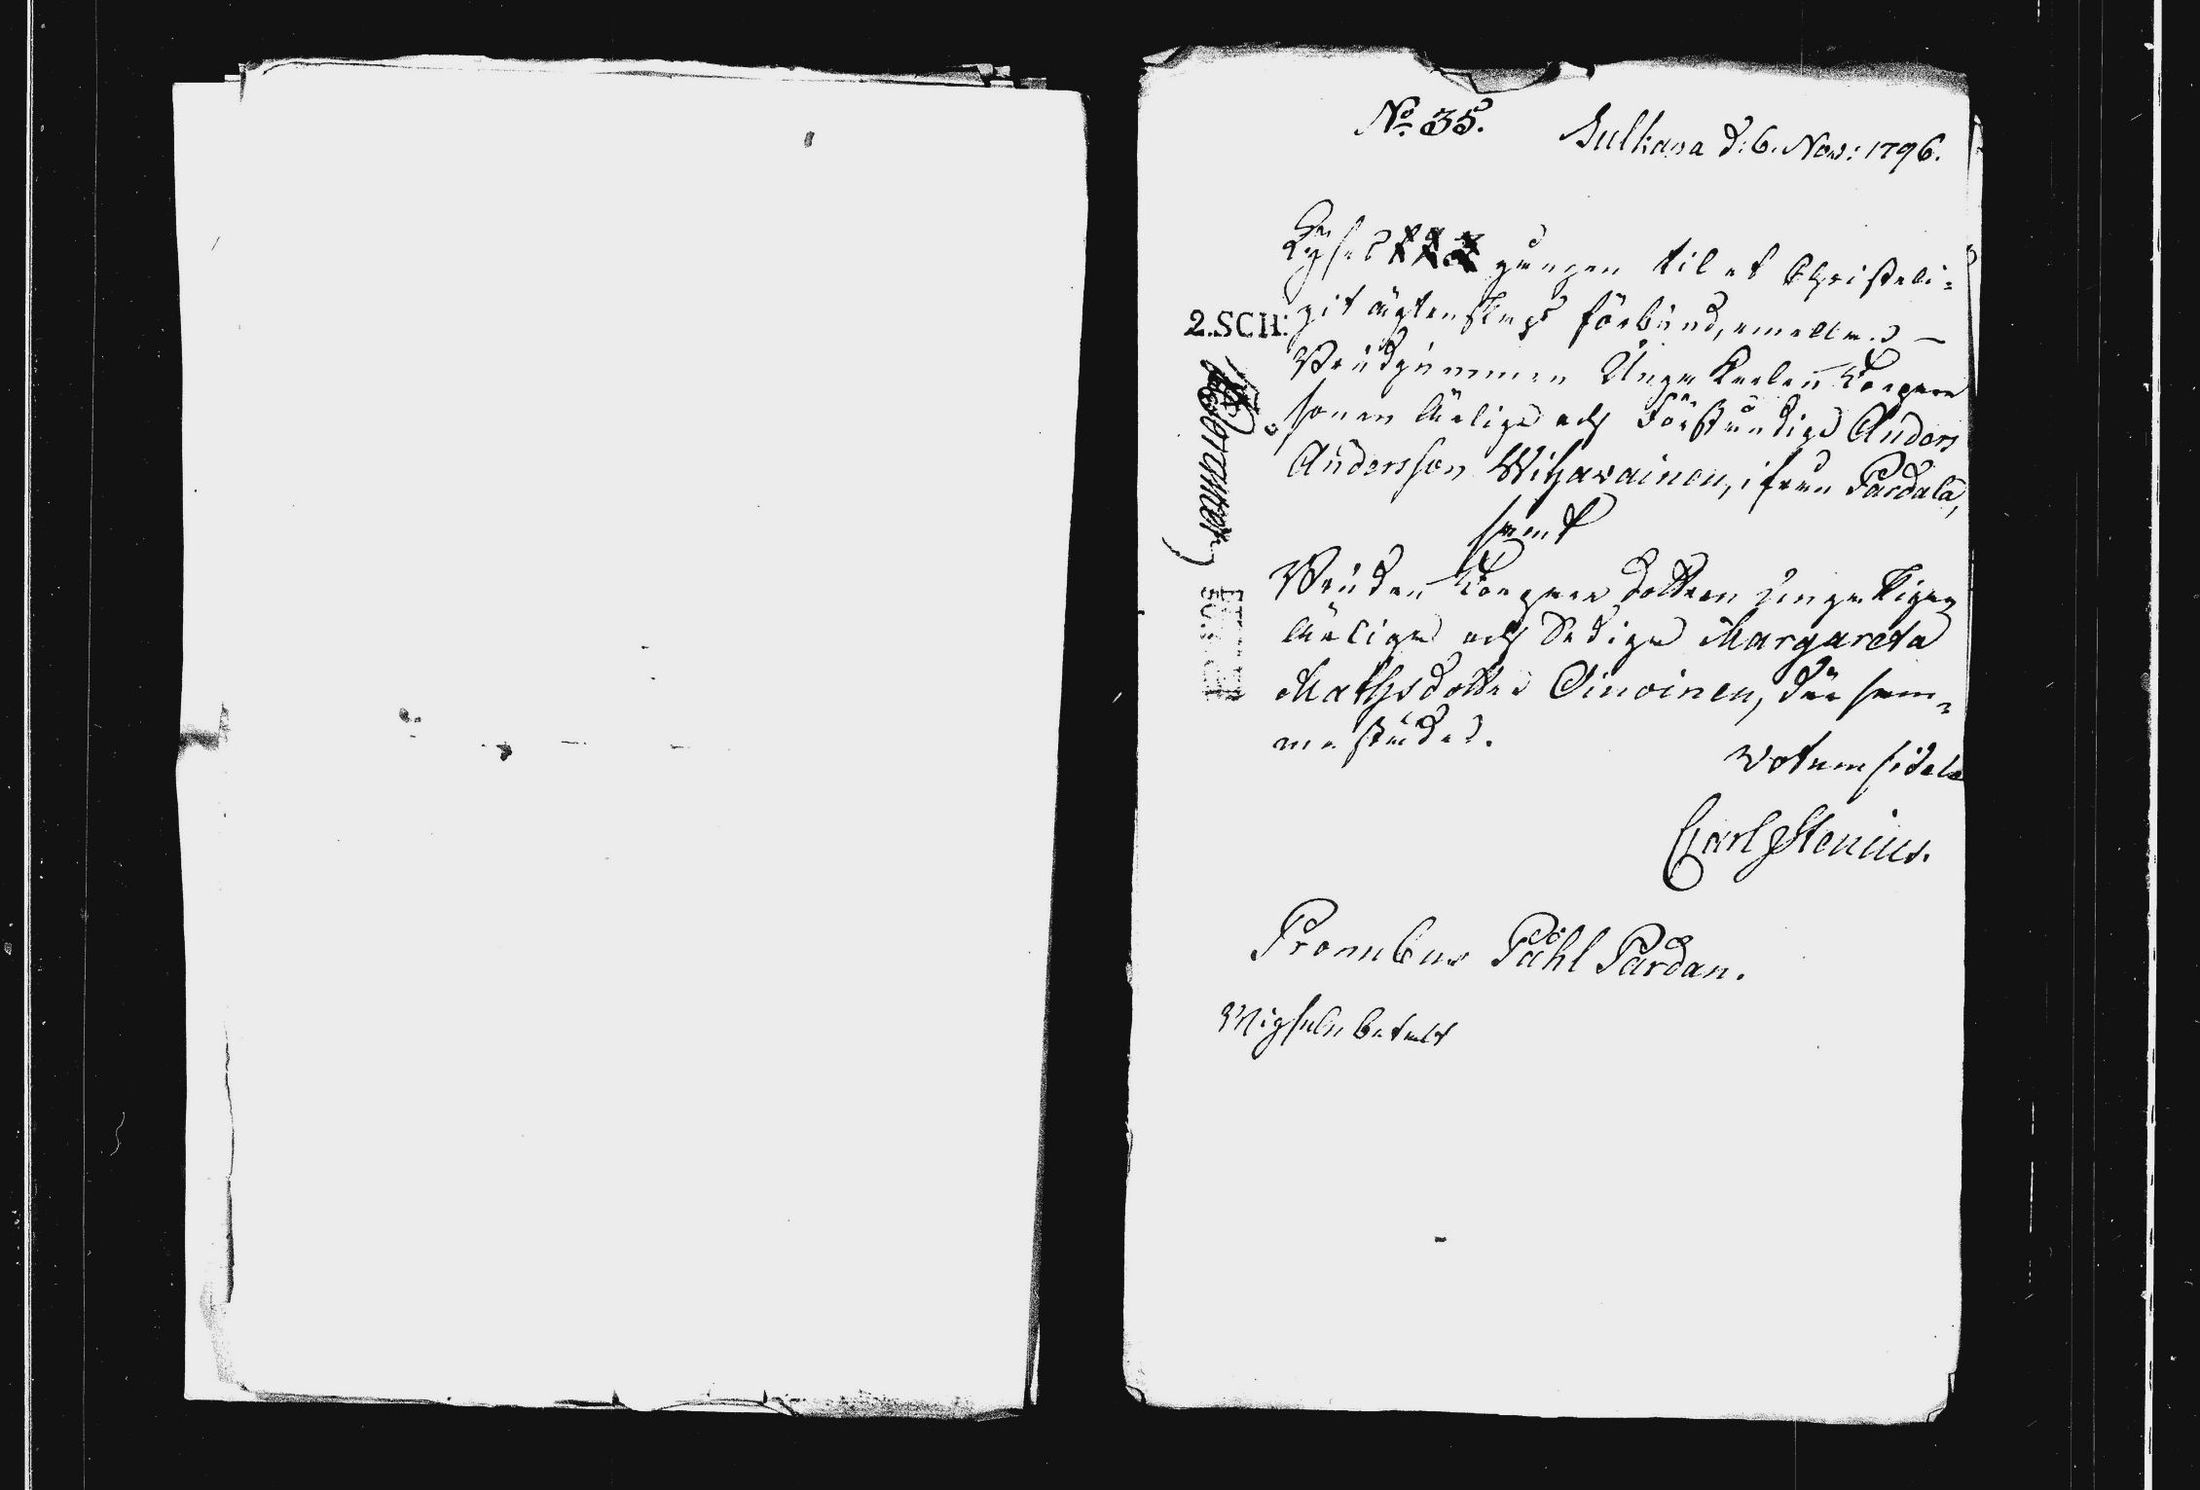 No 35.
Sulkava d: 6. Nov: 1796.
Lyses xxx gången til et Christeli-
git ägtenskaps förbund, emellan
2.SCH:
Brudgummen Unga Karlen Torpare
sonen Ärlige och Förståndige Anders
Andersson Wihavainen, ifrån Pardala,
samt
Bruden Torpare dottren unga Pigan
Ärliga och Sediga Margareta
Mathsdotter Oinoinen, där sam-
ma städes.
Votum fidele
Carl Stenius.
Pronubus Påhl Pardan.
Wigseln betalt